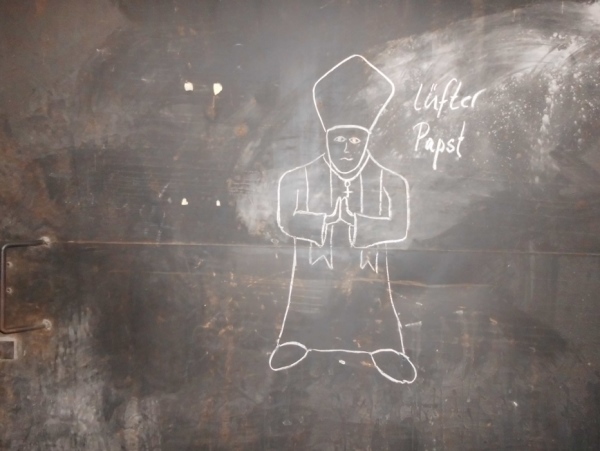 Lüfter
Papst